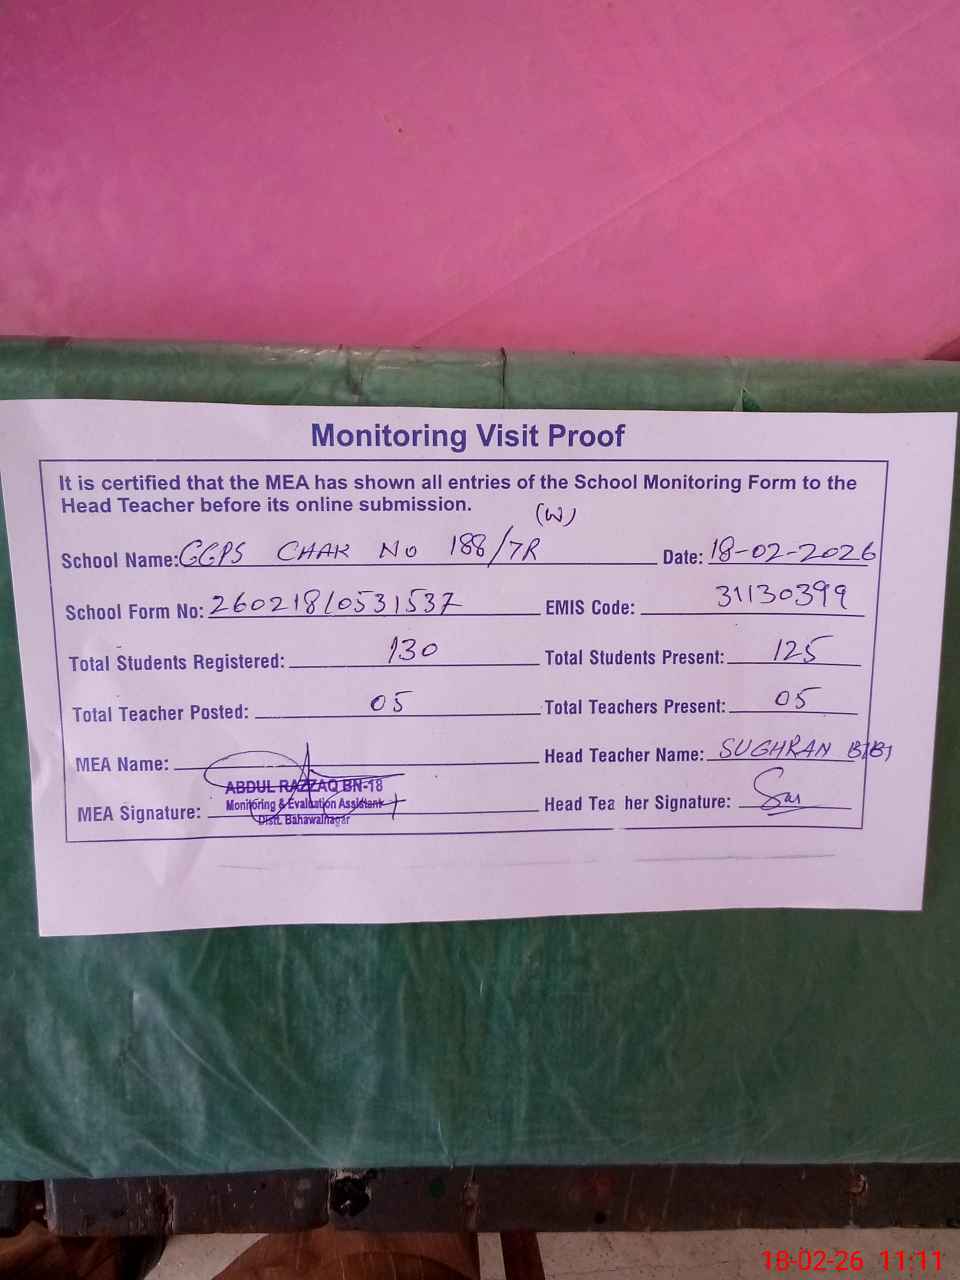 Monitoring Visit Proof
It is certified that the MEA has shown all entries of the School Monitoring Form to the
Head Teacher before its online submission.
(W)
School Name: GGPS CHAK No 188/7R Date: 18-02-2026
School Form No: 260218/0531537 EMIS Code: 31130399
Total Students Registered: 130 Total Students Present: 125
Total Teacher Posted: 05 Total Teachers Present: 05
MEA Name: Head Teacher Name: SUGHRAN BIBI
ABDUL RAZZAQ BN-18
Monitoring & Evaluation Assistant
Distt. Bahawalnagar
MEA Signature: Head Tea her Signature:
18-02-26 11:11